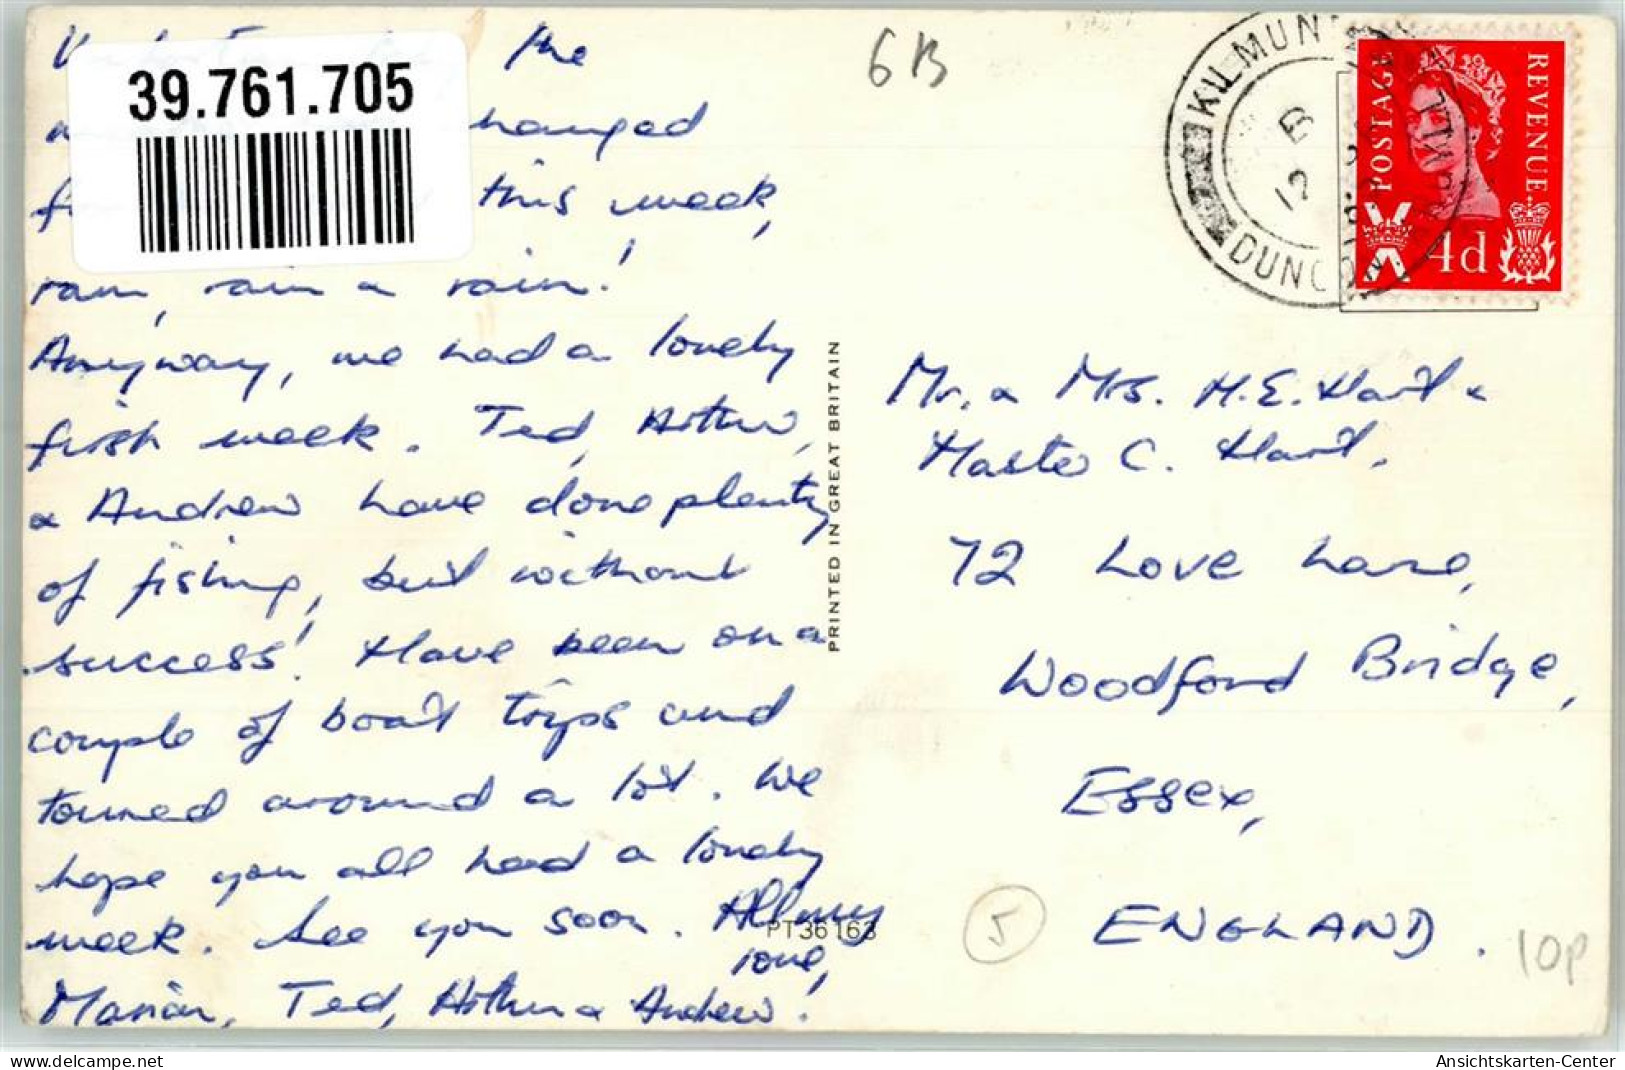 the
39.761.705
changed
this week,
rain, rain & rain!
Anyway, we had a lovely
first week. Ted, Arthur,
& Andrew have done plenty
of fishing, but without
success! Have been on a
couple of boat trips and
toured around a lot. We
hope you all had a lovely
week. See you soon. All my
love,
Marian, Ted, Arthur & Andrew!
PRINTED IN GREAT BRITAIN
PT36163
6B
KILMUN
12
DUNOON
POSTAGE
REVENUE
4d
Mr. & Mrs. H.E. Hart &
Master C. Hart,
72 Love Lane,
Woodford Bridge,
Essex,
ENGLAND.
5
10p
Ansichtskarten-Center